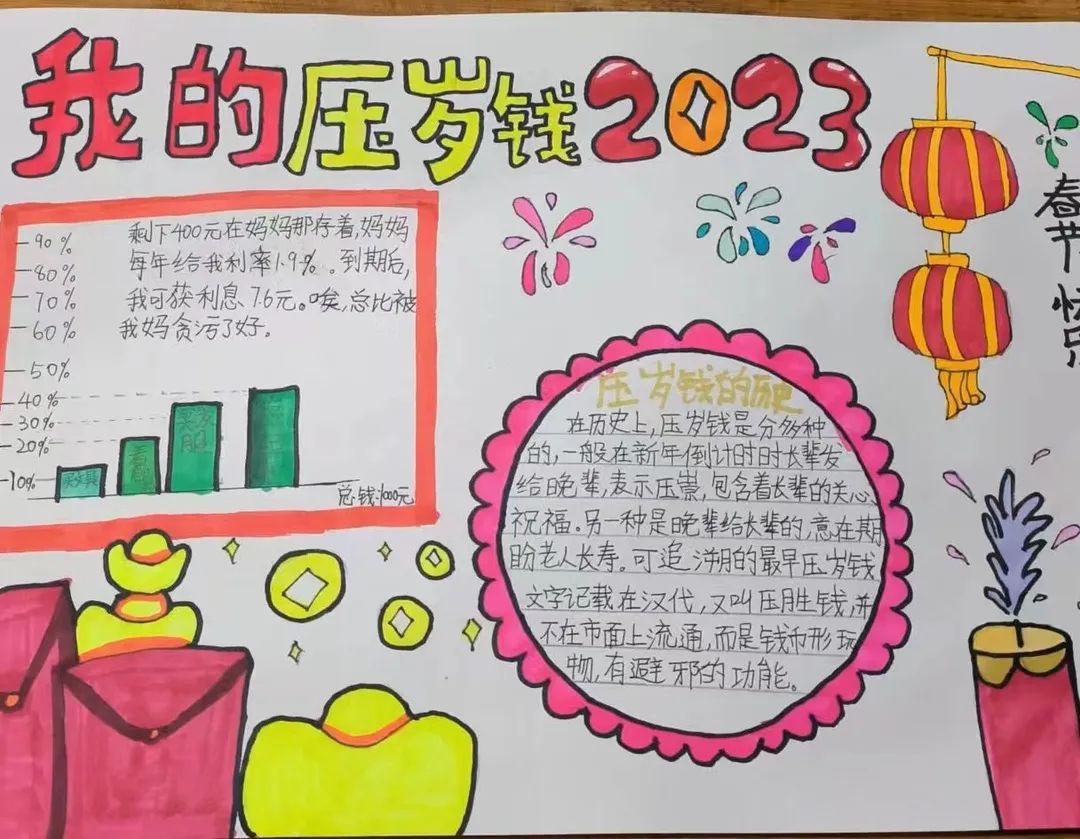 我的压岁钱2023
春节快乐
剩下400元在妈妈那存着,妈妈
每年给我利率1.9%。到期后,
我可获利息7.6元。唉,总比被
我妈贪污了好。
90%
80%
70%
60%
50%
40%
30%
20%
10%
买文具
买衣服
总钱:1000元
压岁钱的历史
在历史上,压岁钱是分多种
的,一般在新年倒计时时长辈发
给晚辈,表示压祟,包含着长辈的关心、
祝福。另一种是晚辈给长辈的,意在期
盼老人长寿。可追溯的最早压岁钱
文字记载在汉代,又叫压胜钱,并
不在市面上流通,而是钱币形玩
物,有避邪的功能。